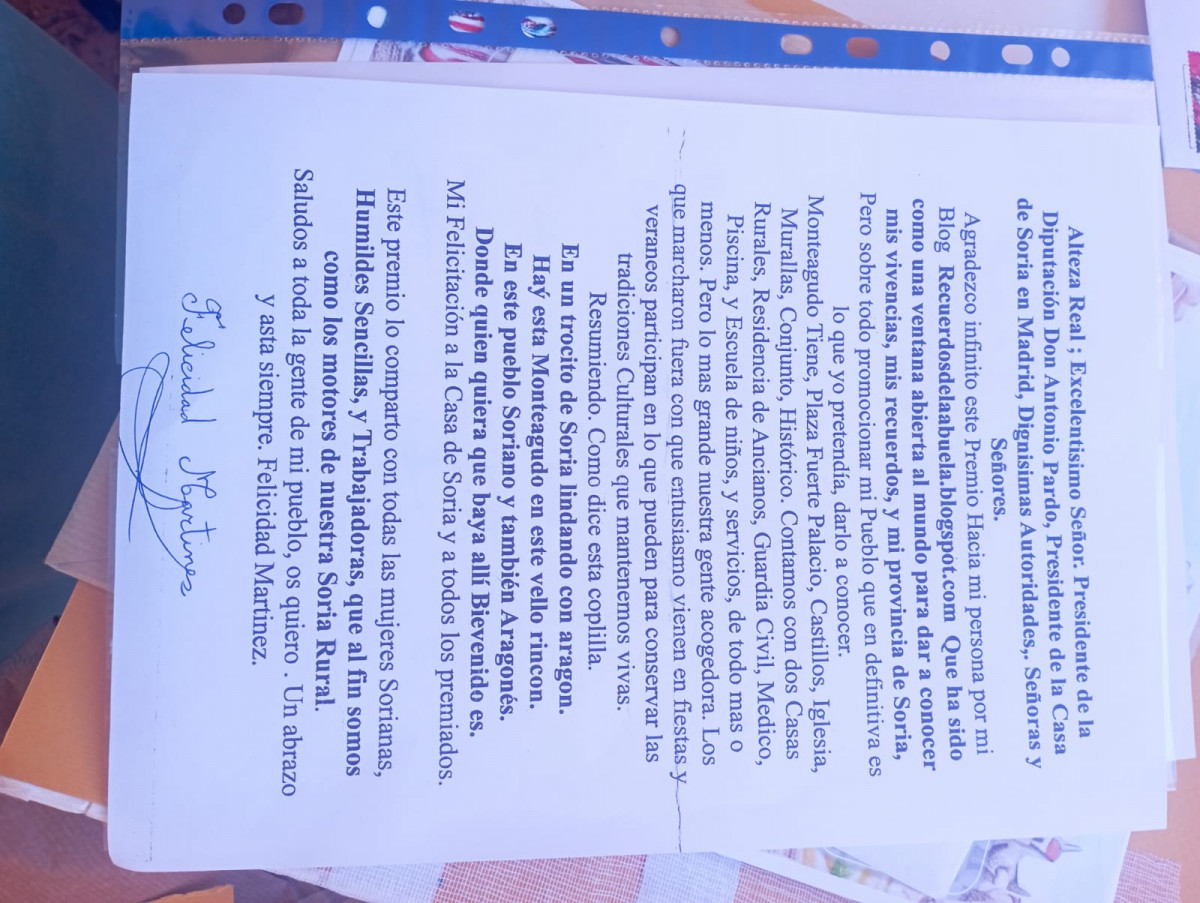 Alteza Real ; Excelentisimo Señor. Presidente de la
Diputación Don Antonio Pardo, Presidente de la Casa
de Soria en Madrid, Dignisimas Autoridades,. Señoras y
Señores.
Agradezco infinito este Premio Hacia mi persona por mi
Blog Recuerdosdelaabuela.blogspot.com Que ha sido
como una ventana abierta al mundo para dar a conocer
mis vivencias, mis recuerdos, y mi provincia de Soria,
Pero sobre todo promocionar mi Pueblo que en definitiva es
lo que yo pretendía, darlo a conocer.
Monteagudo Tiene, Plaza Fuerte Palacio, Castillos, Iglesia,
Murallas, Conjunto, Histórico. Contamos con dos Casas
Rurales, Residencia de Ancianos, Guardia Civil, Medico,
Piscina, y Escuela de niños, y servicios, de todo mas o
menos. Pero lo mas grande nuestra gente acogedora. Los
que marcharon fuera con que entusiasmo vienen en fiestas y
veraneos participan en lo que pueden para conservar las
tradiciones Culturales que mantenemos vivas.
Resumiendo. Como dice esta coplilla.
En un trocito de Soria lindando con aragon.
Haý esta Monteagudo en este vello rincon.
En este pueblo Soriano y también Aragonés.
Donde quien quiera que baya allí Bievenido es.
Mi Felicitación a la Casa de Soria y a todos los premiados.
Este premio lo comparto con todas las mujeres Sorianas,
Humildes Sencillas, y Trabajadoras, que al fin somos
como los motores de nuestra Soria Rural.
Saludos a toda la gente de mi pueblo, os quiero . Un abrazo
y asta siempre. Felicidad Martinez.
Felicidad Martinez